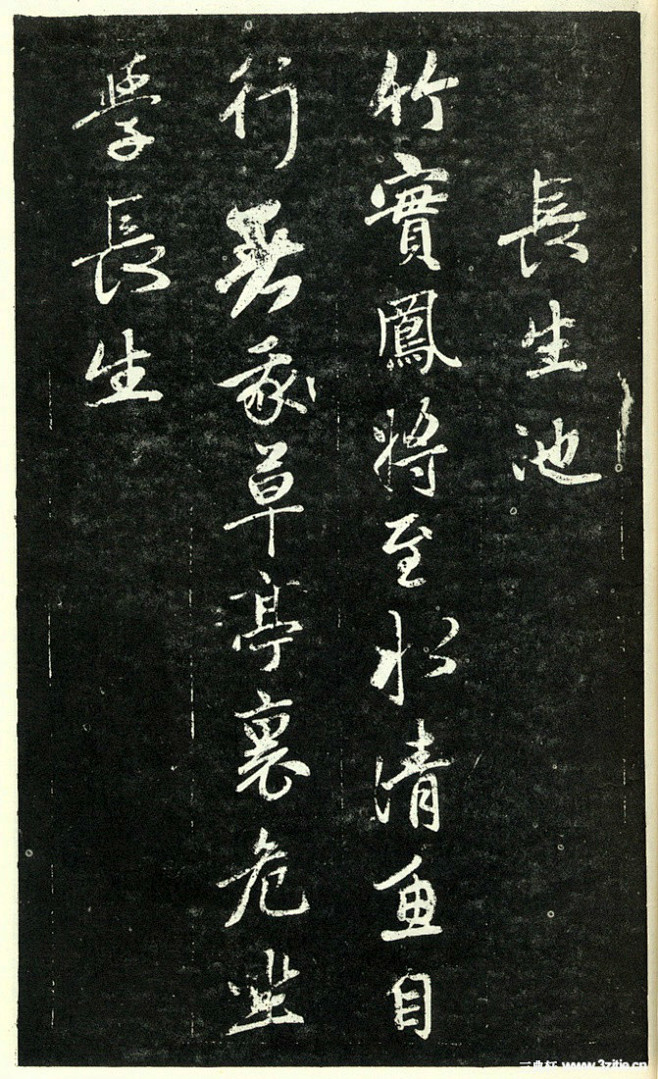 長生池
竹實鳳將至水清魚自
行著我草亭裏危坐
學長生
www.3zitie.cn